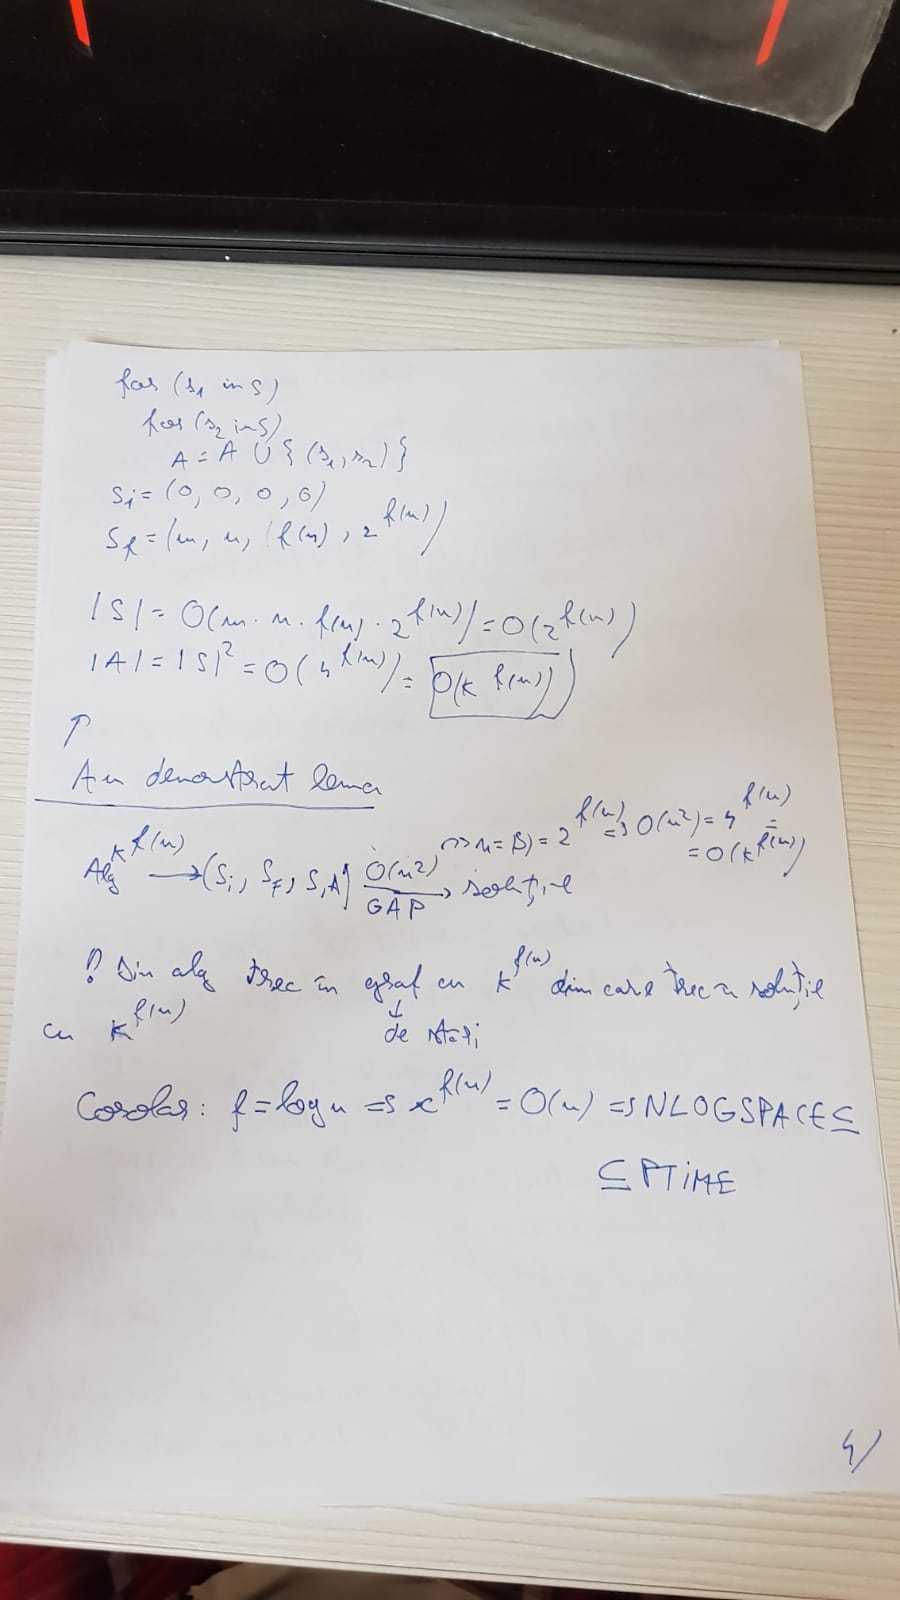 for (s₁ in S)
for (s₂ in S)
A = A ∪ { (s₁, s₂) }
Si = (0, 0, 0, 0)
Sf = (m, n, f(n), 2^f(n))
|S| = O(m · n · f(n) · 2^f(n)) = O(2^f(n))
|A| = |S|² = O(4^f(n)) = O(k^f(n))
↑
Am demonstrat lema
Alg k^f(n) → (Si, SF, S, A) O(n²) GAP → soluție
n = |S| = 2^f(n) => O(n²) = 4^f(n) =
= O(k^f(n))
! Din alg trec în graf cu k^f(n) din care trec în soluție
cu k^f(n) ↓ de stări
Corolar: f = log n => k^f(n) = O(n) => NLOGSPACE ⊆
⊆ PTIME
4)